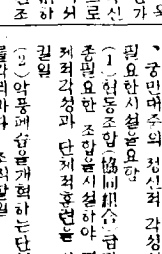 、궁민대중의 정신적 각성
필요한 시설을요함
(1)협동조합(協同組合)급
종필요한 조합을시설하야
제적각성과 단체적훈련을
킬일
(2)악풍폐습을개혁하는단